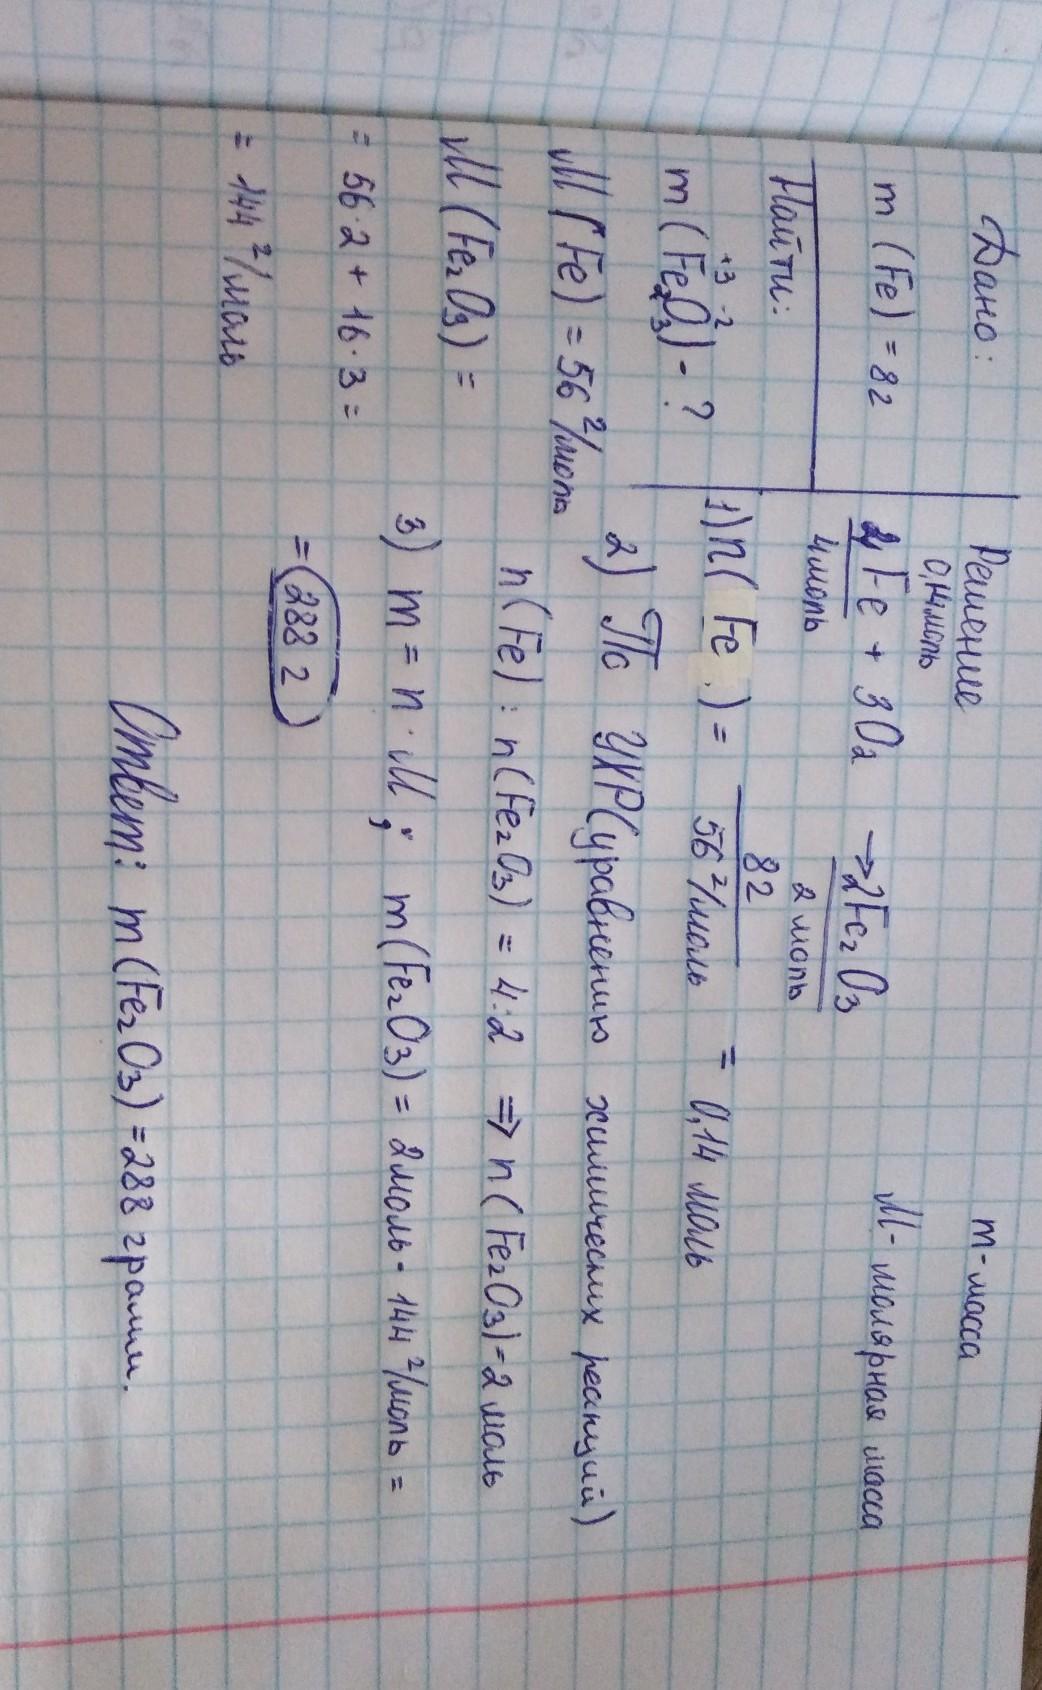 Дано:
m (Fe) = 8г
Найти:
m (Fe₂⁺³O₃⁻²) - ?
M (Fe) = 56 г/моль
M (Fe₂O₃) =
= 56·2 + 16·3 =
= 144 г/моль
Решение
0,14моль
4Fe + 3O₂ → 2Fe₂O₃
4моль 2 моль
1) n( Fe ) = 8г / 56 г/моль = 0,14 моль
2) По УХР(уравнению химических реакций)
n(Fe) : n(Fe₂O₃) = 4:2 ⇒ n(Fe₂O₃)=2 моль
3) m = n · M ; m(Fe₂O₃) = 2моль · 144 г/моль =
= 288 г
Ответ: m(Fe₂O₃)=288 грамм.
m - масса
M - молярная масса